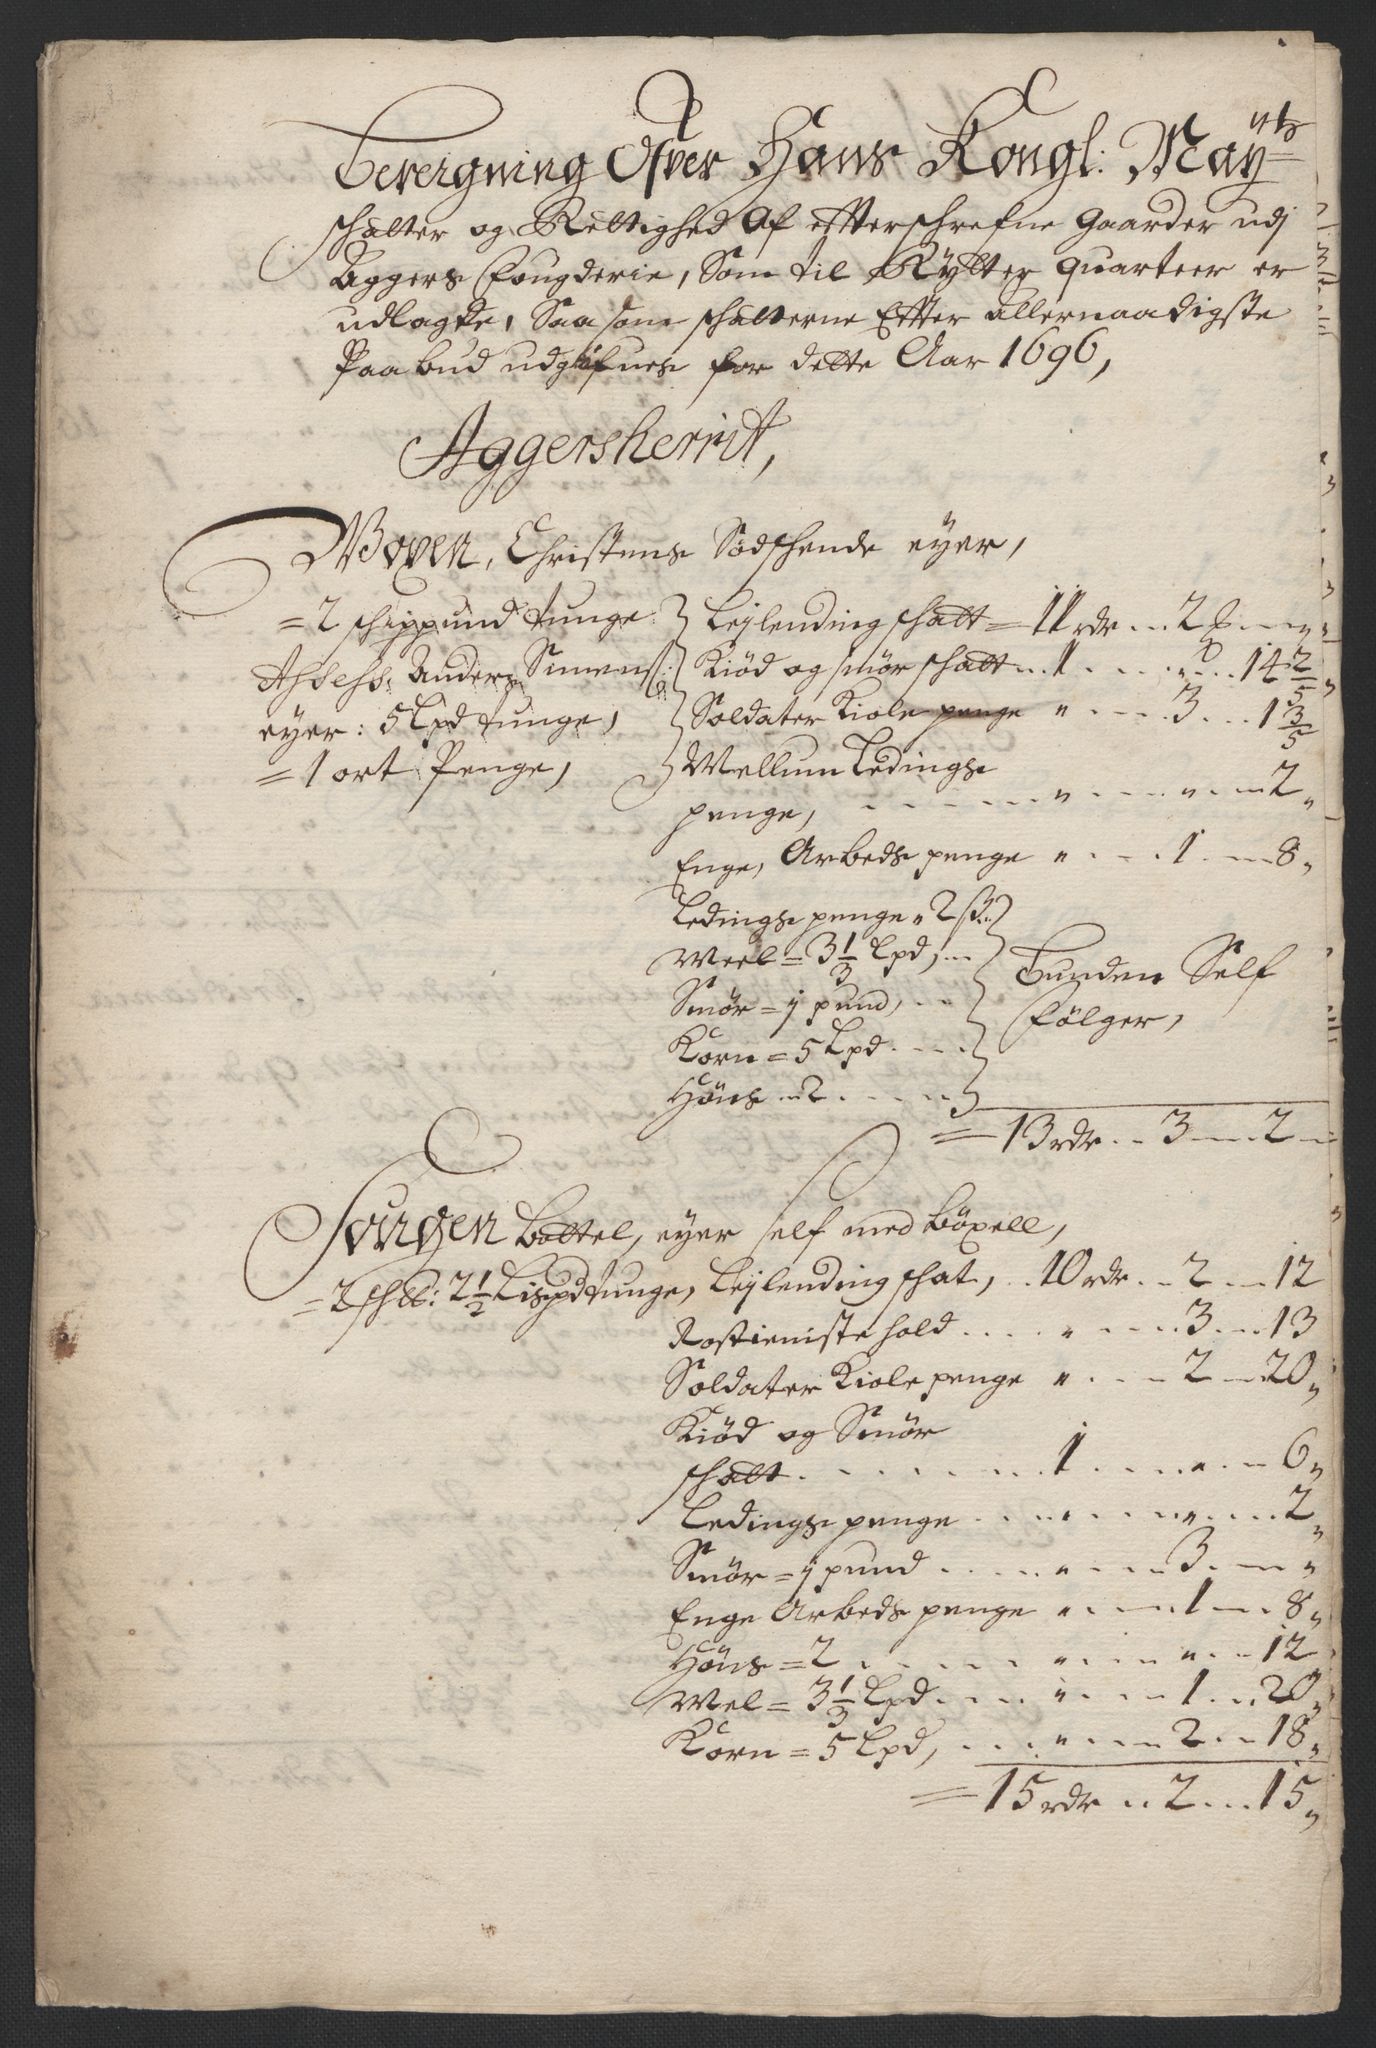 Bereigning Ofver Hans Kongl: May:ttz
schatter og Rettighed Af effterschrefne Gaarder udj
Aggers Fougderie, Som til Rÿtter quarteer er
udlagde, Saa som schatterne Effter allernaadigste
Paabud udgifues for dette Aar 1696,
Aggersherrit,
Woxen, Christens Sødschende eyer,
= 2 schippund tunge
Assess: Anders Simens:
eyer: 5 Lpd tunge,
= 1 ort Penge,
Leÿlending schatt = 11 rdr .. 2 ß ... "
Kiød og smør schatt .. 1 .... " ... 14 2/5
Soldater Kiole penge " .... 3 ... 1 3/5
Mellum Ledings
penge, ....... " .... " ... 2 "
Enge, Arbeds penge " .... 1 ... 8 "
Ledings penge " 2 ß:
Meel = 3 1/3 Lpd, ...
Smør = j pund, ...
Korn = 5 Lpd ....
Høns .. 2 .....
Bunden Self
følger,
= 13 rdr .. 3 ... 2 "
Jørgen Bottel, eyer self med böxell,
= 2 schll: 2 1/2 Lispd tunge, Leÿlending schat, .. 10 rdr .. 2 ... 12
Rostieniste hold .... " .... 3 ... 13
Soldater Kiole penge " .... 2 ... 20 "
Kiød og Smør
schatt ........ 1 .... " ... 6 "
Ledings penge .... " .... " ... 2 "
Smør = j pund .... " .... 3 ... "
Enge Arbeds penge " .... 1 ... 8 "
Høns = 2 ...... " .... " ... 12
Mel = 3 1/3 Lpd .... " .... 1 ... 20 "
Korn = 5 Lpd, .... " .... 2 ... 18 "
= 15 rdr .. 2 ... 15 "